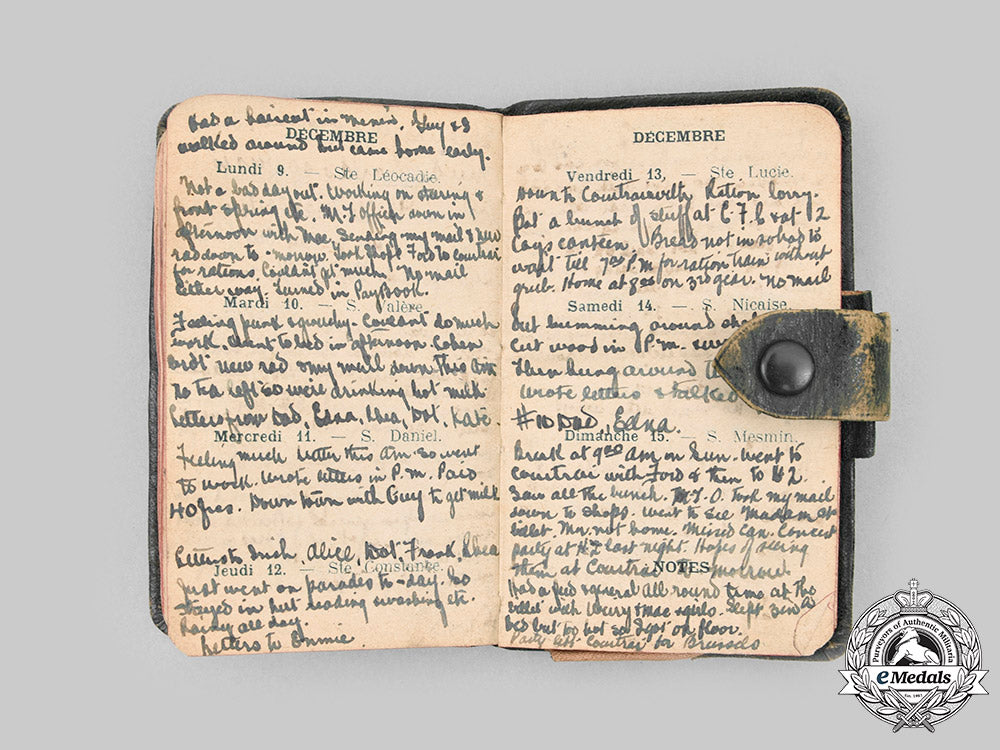 Had a haircut in Menin. Guy & I
DÉCEMBRE
walked around but came home early.
Lundi 9. — Ste Léocadie.
Not a bad day out. Working on &
front spring etc. M.T officer down in
afternoon with Mac. Sending my mail & new
rad down to-morrow. Took Ford to Courtrai
for rations. Couldn't get much. No mail
either way. Turned in Pay Book.
Mardi 10. — S. Valère.
Feeling punk & grouchy. Couldn't do much
work. Went to bed in afternoon.
new rad & my mail down this am
No tea left so we're drinking hot milk
Letters from Dad, Edna, Rhea, Dot, Kate.
Mercredi 11. — S. Daniel.
Feeling much better this am. so went
to work. Wrote letters in P.m. Paid
40 frcs. Down town with Guy to get milk
Letters to Irish, Alice, Dot, Frank, Rhea
Jeudi 12. — Ste Constante.
Just went on parades to-day. So
stayed in hut reading washing etc.
Rainy all day.
Letters to Emmie
DÉCEMBRE
Vendredi 13, — Ste Lucie.
Down to Courtrai with Ration lorry.
Put a bunch of stuff at C.F.C & at 12
Coys canteen. Bread not in so had to
wait till 7 00 P.M for ration train without
grub. Home at 8 00 on 3rd gear. No mail
Samedi 14. — S. Nicaise.
but bumming around
Cut wood in P.m.
Then hung around
Wrote letters & talked
# to Dad, Edna.
Dimanche 15. — S. Mesmin.
Break at 9 00 am on Sun. Went to
Courtrai with Ford & then to 2.
Saw all the bunch. M.T.O. took my mail
down to shops. Went to see Madam at
billet. Mr. not home. Missed Can. Concert
party at last night. Hopes of seeing
them at Courtrai to morrow.
NOTES
Had a general all round time at the
billet with & Mac & girls. Slept 3 in a
bed but too hot so slept on floor.
Party left Courtrai for Brussels
Purveyors of Authentic Militaria
eMedals